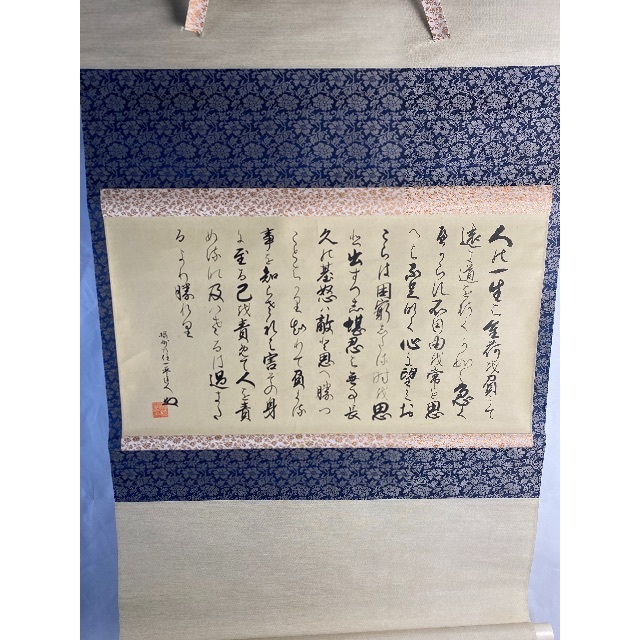 人の一生は重荷を負て
遠き道を行くか如し急く
へからす不自由を常と思
へは不足なく心に望みお
こらは困窮したる時を思
ひ出すへし堪忍は無事長
久の基怒は敵と思へ勝つ
ことはかり知りて負くる
事を知らされは害その身
に至る己を責めて人を責
めるな及はさるは過きた
るより勝れり